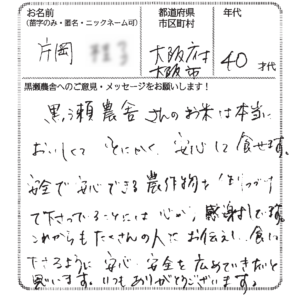 お名前
(苗字のみ・匿名・ニックネーム可)
都道府県
市区町村
年代
片岡
大阪府
大阪市
40才代
黒瀬農舎へのご意見・メッセージをお願いします!
黒瀬農舎さんのお米は本当に
おいしくて とにかく、安心して食せます。
安全で安心できる農作物を
て下さっていることには心から、感謝しています。
これからもたくさんの人にお伝えし、食に
下さるように 安心・安全を広めていきたいと
思います。いつもありがとうございます。